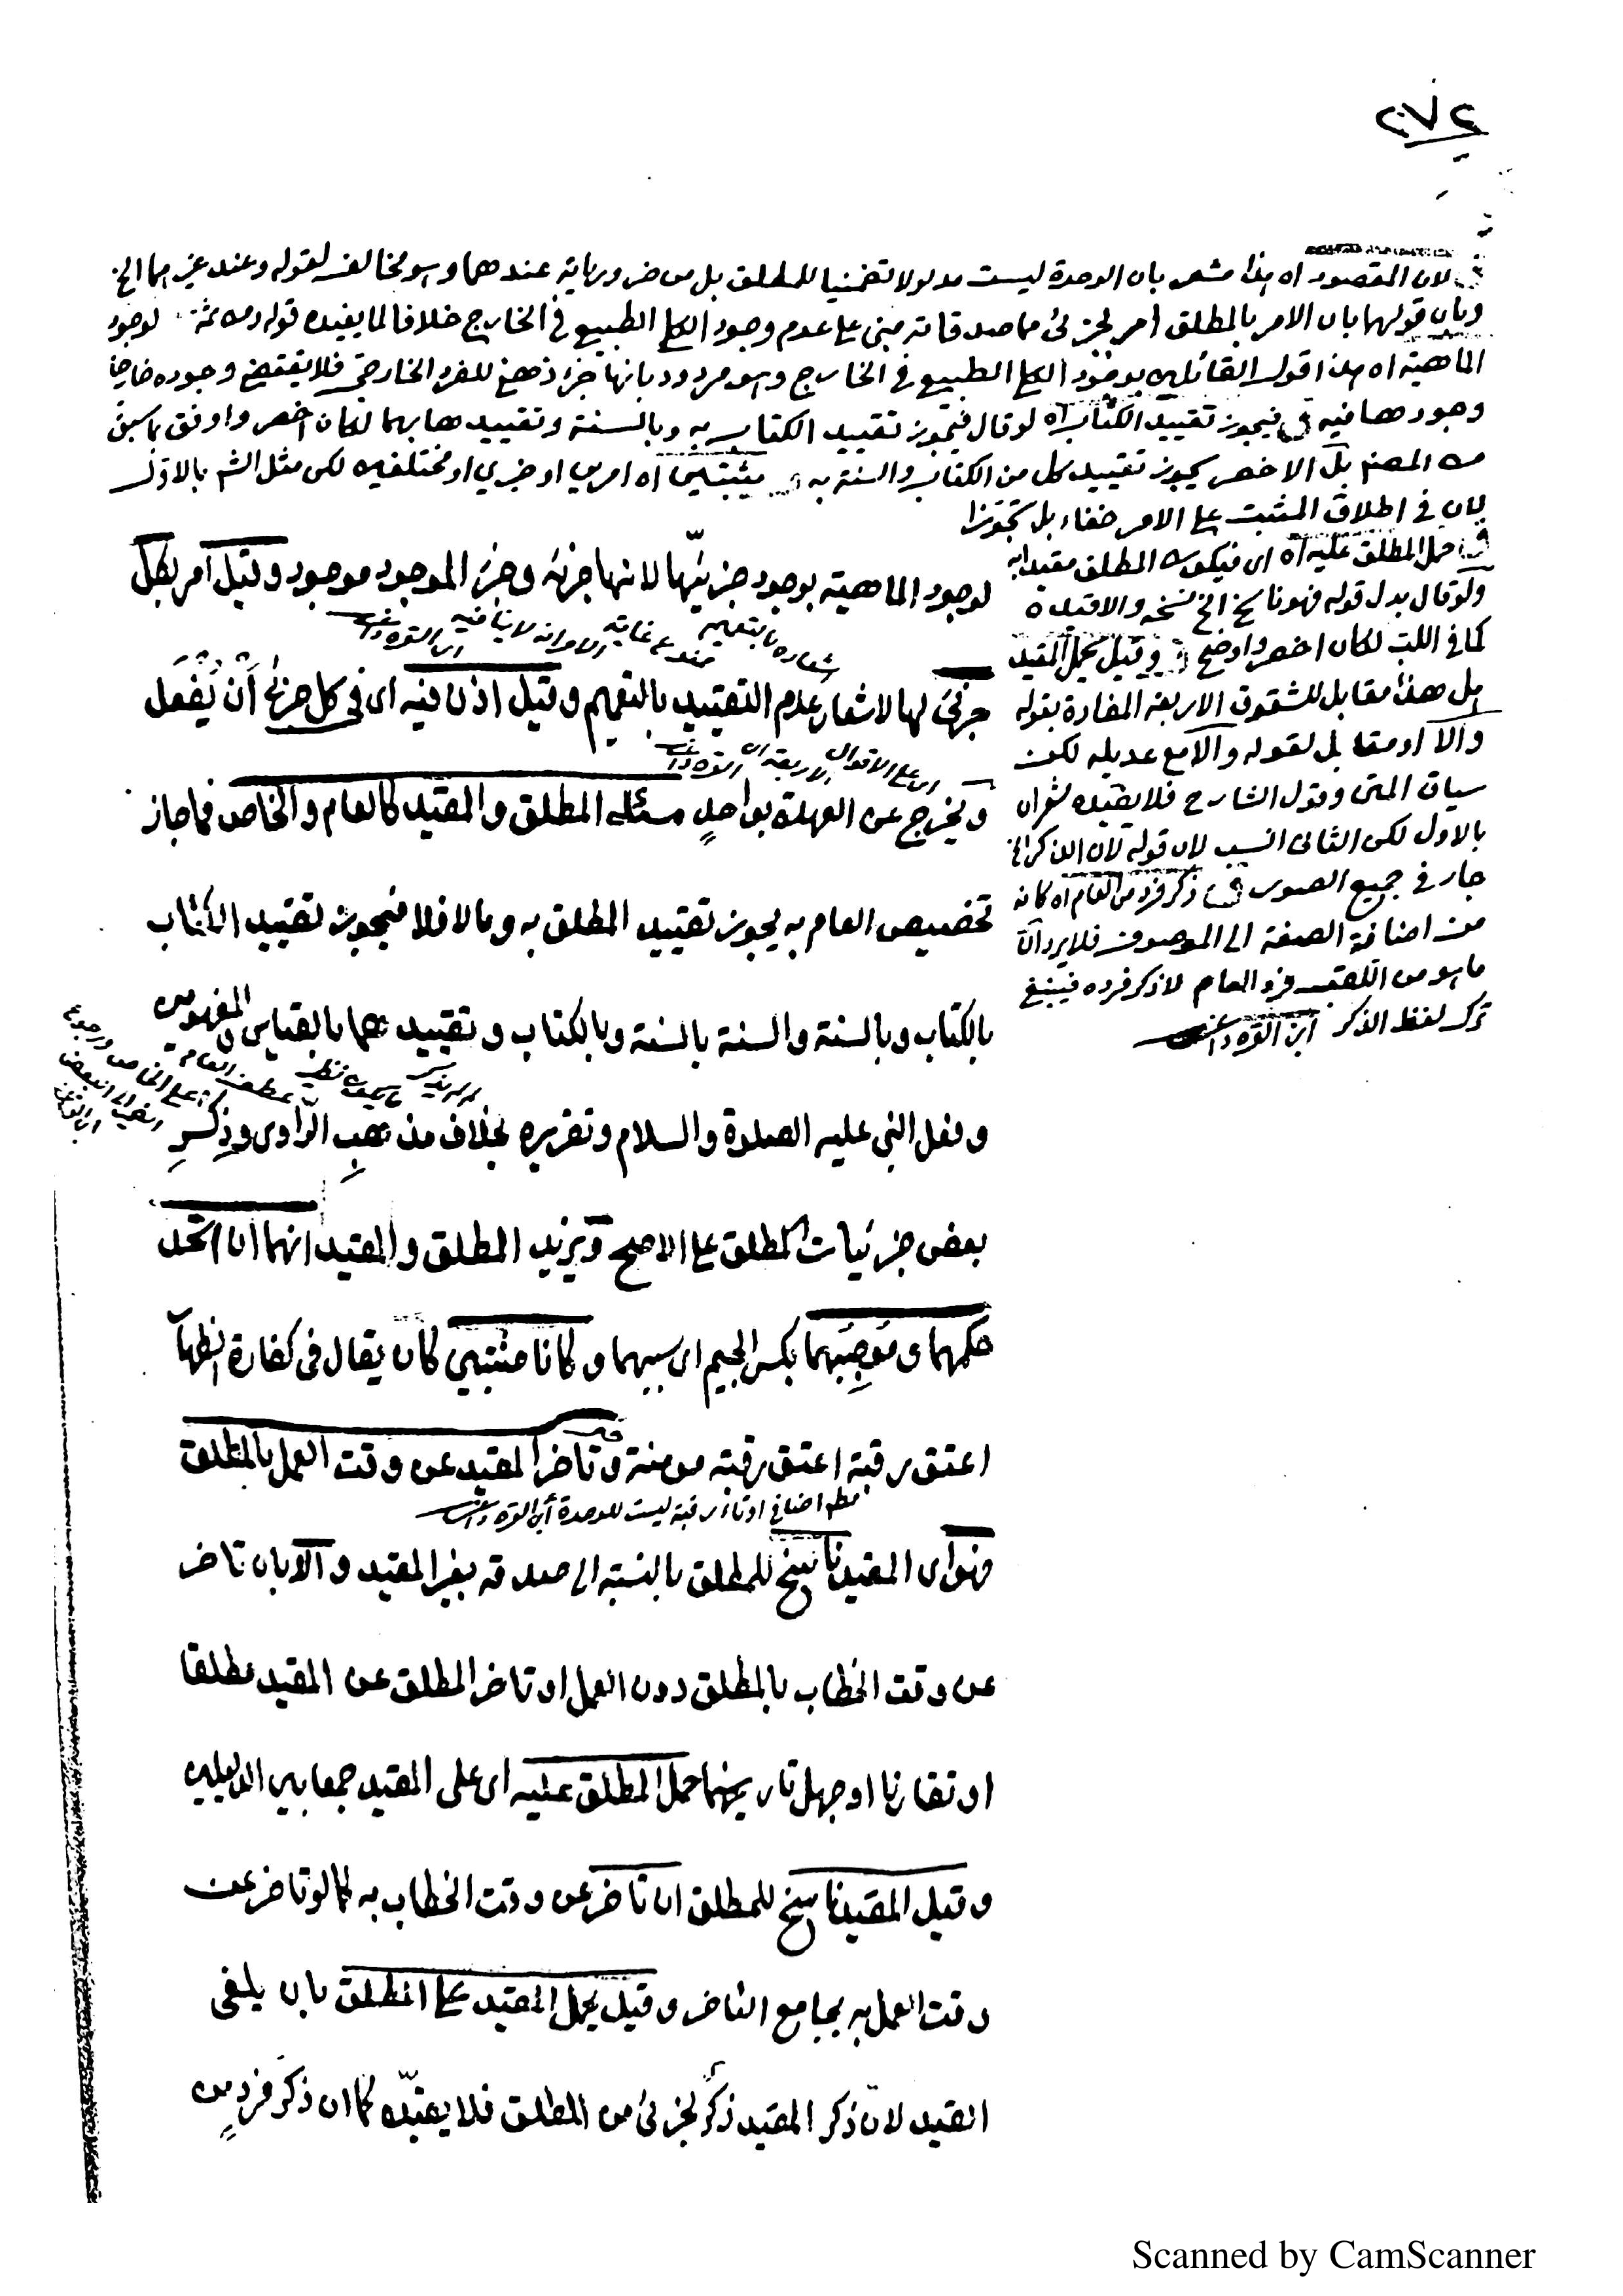 ٢٧٢
لان المقصود اه هذا مشعر بان الوحدة ليست مدلولا تضمنيا للمطلق بل من ضرورياته عندهما وهو مخالف لقوله وعند غيرهما الخ
وبان قولهما بان الامر بالمطلق امر بجزئى ما صدقاته مبنى على عدم وجود الكلى الطبيعى فى الخارج خلافا لما يفيده قوله لوجود
الماهية اه هذا قول القائلين بوجود الكلى الطبيعى فى الخارج وهو مردود بانها جزء ذهنى للفرد الخارجى فلا يقتضى وجوده خارجا
وجودها فيه فيجوز تقييد الكتاب اه لو قال فيجوز تقييد الكتاب به وبالسنة وتقييدها بهما لكان اخصر واوفق بما سبق
من المصنف بل الاخصر يجوز تقييد كل من الكتاب والسنة به مثبتين اه امرين او خبرين او مختلفين لكن مثل الشم بالاول
لان فى اطلاق المثبت على الامر خفاء بل تجوزا
حمل المطلق عليه اه اى فيكون المطلق مقيدا به
ولو قال بدل قوله فهو ناسخ الخ نسخه والا قيده
كما فى اللب لكان اخصر واوضح وقيل يحمل المقيد
هذا مقابل للشقوق الاربعة المفادة بقوله
والا او مقابل لقوله والا مع عديله لكن
سياق المتن وقول الشارح فلا يقيده يشعران
بالاول لكن الثانى انسب لان قوله لان الذكر الخ
جار فى جميع الصور ذكر فرد من العام اه كانه
من اضافة الصفة الى الموصوف فلا يرد ان
ما هو من اللقب فرد العام لا ذكر فرده فينبغى
ترك لفظ الذكر ابن القره داغى
لوجود الماهية بوجود جزئيها لانها جزئه وجزء الموجود موجود وقيل امر بكل
جزئى لها لاشعار عدم التقييد بالتعميم وقيل اذن فيه اى فى كل جزئى أن يُفعل
اى على الاقوال الاربعة ابن القره داغى
ويخرج عن العهدة بواحدٍ مسئلة المطلق والمقيد كالعام والخاص فما جاز
تخصيص العام به يجوز تقييد المطلق به وما لا فلا فيجوز تقييد الكتاب
بالكتاب وبالسنة والسنة بالسنة وبالكتاب وتقييدهما بالقياس والمفهومين
وفعل النبى عليه الصلوة والسلام وتقريره بخلاف مذهبِ الراوى وذِكرِ
بعض جزئيات المطلق على الاصح ويزيد المطلق والمقيد انهما ان اتحد
حكمهما وموجِبهما بكسر الجيم اى سببهما وكانا مثبتين كأن يقال فى كفارة الظهار
اعتق رقبة اعتق رقبة مومنة وتاخر المقيد عن وقت العمل بالمطلق
فهو اى المقيد ناسخ للمطلق بالنسبة الى صدقه بغير المقيد والا بان تاخر
عن وقت الخطاب بالمطلق دون العمل او تاخر المطلق عن المقيد مطلقا
او تقارنا او جهل تاريخهما حمل المطلق عليه اى على المقيد جمعا بين الدليلين
وقيل المقيد ناسخ للمطلق ان تاخر عن وقت الخطاب به كما لو تاخر عن
وقت العمل به بجامع التاخر وقيل يحمل المقيد على المطلق بان يلغى
القيد لانّ ذكر المقيد ذكرٌ لجزئى من المطلق فلا يقيّده كما ان ذكر فردٍ من
Scanned by CamScanner